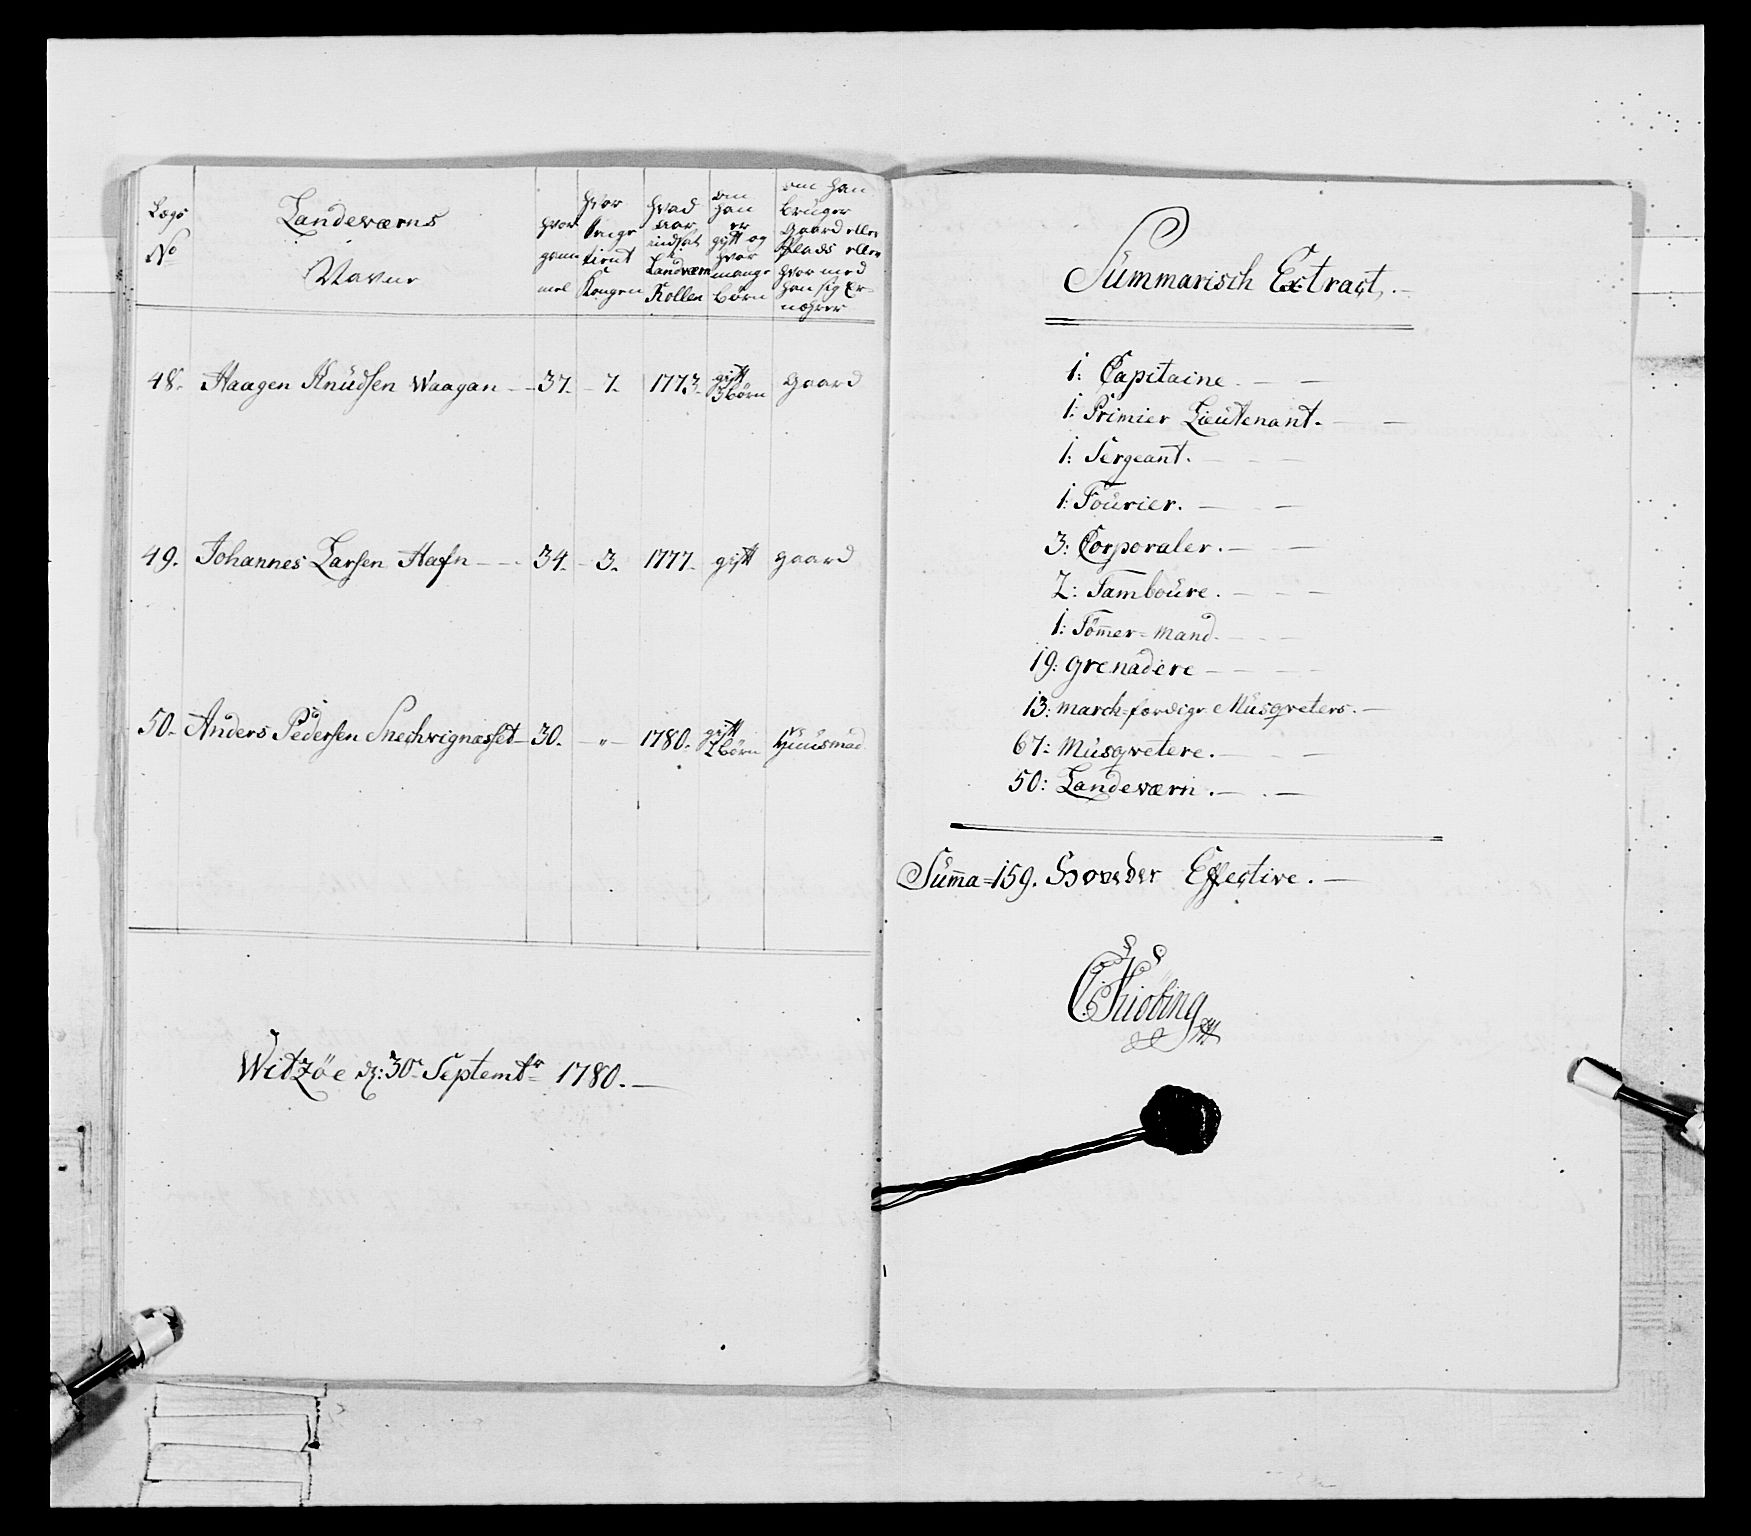 Lægs
No
Landeværns
Navne
hvor
gam
mel
hvor
længe
tient
Kongen
hvad
aar
indsat
i
Landværn
Rollen
om
han
er
gift og
hvor
mange
Børn
om han
bruger
Gaard eller
Plads eller
hvor med
han sig Er-
nærer
48. Haagen Knudsen Waagan - 37. - 7. 1773. gift 3 børn Gaard
49. Johannes Larsen Hafn - - 34. - 3. 1777. gift gaard
50. Anders Pedersen Snechvignæsset 30. - „ - 1780. gift 2 børn Huusmad
Witzöe d: 30te Septembr 1780. —
Summarisch Extract. —
1: Capitaine. — —
1: Primier Lieutenant. — —
1: Sergeant. — —
1: Fourier. — —
3: Corporaler. — —
2: Tamboure. — —
1: Tömer=Mand. — —
19: Grenadere — —
13: March-færdige Musqveters. —
67: Musqvetere. — —
50: Landeværn. — —
Suma=159. Hoveder Effective. —
CKiöbing